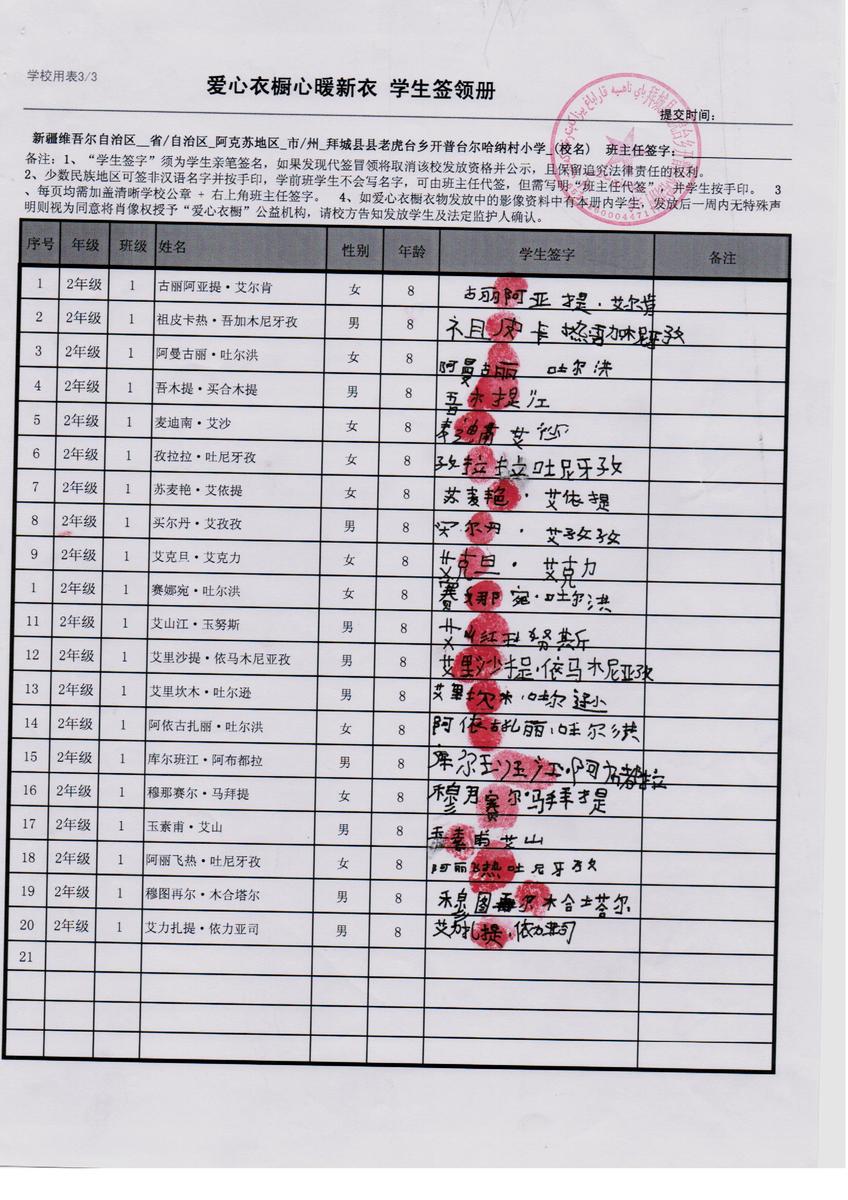 学校用表3/3
爱心衣橱心暖新衣 学生签领册
提交时间：
新疆维吾尔自治区__省/自治区_阿克苏地区_市/州_拜城县县老虎台乡开普台尔哈纳村小学_(校名) 班主任签字：
备注：1、“学生签字”须为学生亲笔签名，如果发现代签冒领将取消该校发放资格并公示，且保留追究法律责任的权利。
2、少数民族地区可签非汉语名字并按手印，学前班学生不会写名字，可由班主任代签，但需写明“班主任代签”，并学生按手印。 3
、每页均需加盖清晰学校公章 + 右上角班主任签字。 4、如爱心衣橱衣物发放中的影像资料中有本册内学生，发放后一周内无特殊声
明则视为同意将肖像权授予“爱心衣橱”公益机构，请校方告知发放学生及法定监护人确认。
序号 年级 班级 姓名 性别 年龄 学生签字 备注
1 2年级 1 古丽阿亚提·艾尔肯 女 8 古丽阿亚提·艾尔肯
2 2年级 1 祖皮卡热·吾加木尼牙孜 男 8 祖皮卡热吾加木尼牙孜
3 2年级 1 阿曼古丽·吐尔洪 女 8 阿曼古丽 吐尔洪
4 2年级 1 吾木提·买合木提 男 8 吾木提江
5 2年级 1 麦迪南·艾沙 女 8 麦迪南 艾沙
6 2年级 1 孜拉拉·吐尼牙孜 女 8 孜拉拉吐尼牙孜
7 2年级 1 苏麦艳·艾依提 女 8 苏麦艳·艾依提
8 2年级 1 买尔丹·艾孜孜 男 8 买尔丹·艾孜孜
9 2年级 1 艾克旦·艾克力 女 8 艾克旦·艾克力
1 2年级 1 赛娜宛·吐尔洪 女 8 赛娜宛·吐尔洪
11 2年级 1 艾山江·玉努斯 男 8 努斯
12 2年级 1 艾里沙提·依马木尼亚孜 男 8 艾里沙提·依马木尼亚孜
13 2年级 1 艾里坎木·吐尔逊 男 8 艾里坎木·吐尔逊
14 2年级 1 阿依古扎丽·吐尔洪 女 8 阿依古扎丽·吐尔洪
15 2年级 1 库尔班江·阿布都拉 男 8 库尔班江·阿布都拉
16 2年级 1 穆那赛尔·马拜提 女 8
17 2年级 1 玉素甫·艾山 男 8 玉素甫艾山
18 2年级 1 阿丽飞热·吐尼牙孜 女 8 阿丽飞热吐尼牙孜
19 2年级 1 穆图再尔·木合塔尔 男 8 穆图再尔木合塔尔
20 2年级 1 艾力扎提·依力亚司 男 8 艾力扎提·依力亚司
21